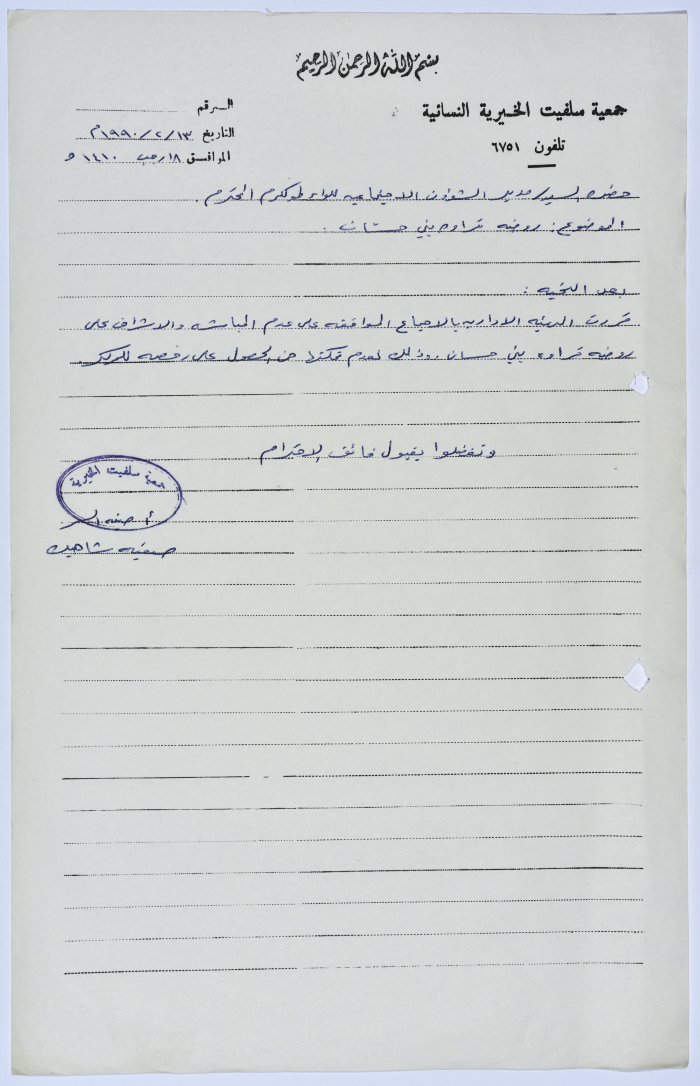 بسم الله الرحمن الرحيم
جمعية سلفيت الخيرية النسائية
تلفون ٦٧٥١
الرقم
التاريخ ١٣/٢/١٩٩٠م
الموافق ١٨ رجب ١٤١٠ ه
حضرة السيد/ مدير الشؤون الاجتماعيه للواء طولكرم المحترم.
الموضوع: روضه قراوه بني حسان.
بعد التحيه:
قررت الهيئه الاداريه بالاجماع الموافقه على عدم المباشره والاشراف على
روضه قراوه بني حسان وذلك لعدم تمكنها من الحصول على رخصه للمركز.
وتفضلوا بقبول فائق الاحترام.
جمعية سلفيت الخيرية
أ. صفيه
صفيه شاهين